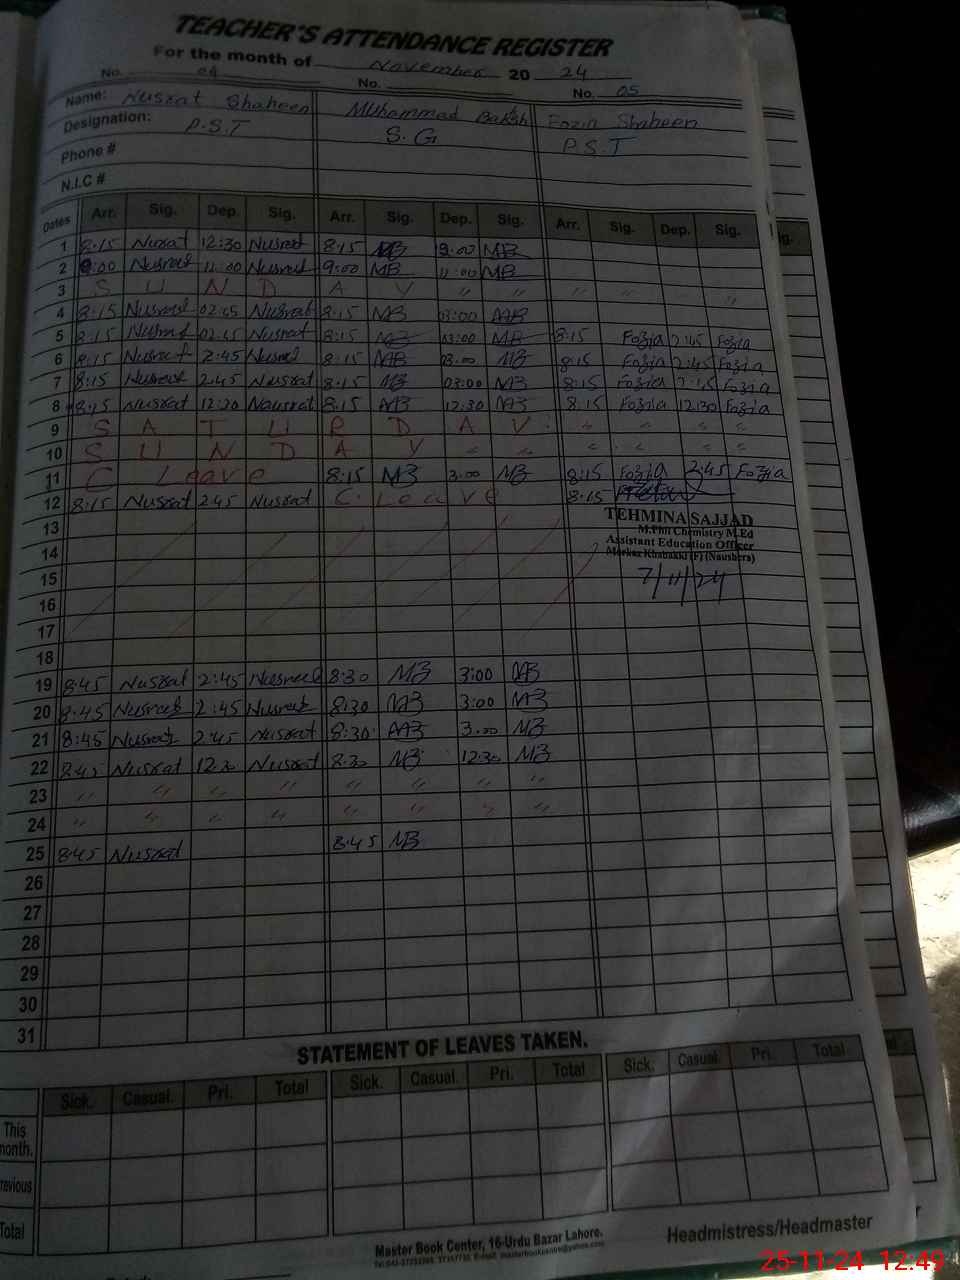 TEACHER'S ATTENDANCE REGISTER
For the month of November 20 24
No. 04 No. No. 05
Name: Nusrat Shaheen Muhammad Baksh Fozia Shaheen
Designation: P.S.T S.G P.S.T
Phone #
N.I.C #
Dates Arr. Sig. Dep. Sig. Arr. Sig. Dep. Sig. Arr. Sig. Dep. Sig.
1 8:15 Nusrat 12:30 Nusrat 8:15 MB MB
2 9:00 Nusrat 11:00 Nusrat 9:00 MB 11:00 MB
3 S U N D A Y " " " " " "
4 8:15 Nusrat 02:45 Nusrat 8:15 MB 03:00 MB
5 8:15 Nusrat 02:45 Nusrat 8:15 MB 03:00 MB 8:15 Fozia 2:45 Fozia
6 8:15 Nusrat 2:45 Nusrat 8:15 MB 03:00 MB 8:15 Fozia 2:45 Fozia
7 8:15 Nusrat 2:45 Nusrat 8:15 MB 03:00 MB 8:15 Fozia 2:45 Fozia
8 8:15 Nusrat 12:30 Nusrat 8:15 MB 12:30 MB 8:15 Fozia 12:30 Fozia
9 S A T U R D A Y " " " "
10 S U N D A Y " " " " " "
11 C Leave 8:15 MB 3:00 MB 8:15 Fozia 2:45 Fozia
12 8:15 Nusrat 2:45 Nusrat C. Leave 8:15
13
TEHMINA SAJJAD
M.Phil Chemistry M.Ed
Assistant Education Officer
Markaz Khabakki (F) (Naushera)
7/11/24
14
15
16
17
18
19 8:45 Nusrat 2:45 Nusrat 8:30 MB 3:00 MB
20 8:45 Nusrat 2:45 Nusrat 8:30 MB 3:00 MB
21 8:45 Nusrat 2:45 Nusrat 8:30 MB 3:00 MB
22 8:45 Nusrat 12:30 Nusrat 8:30 MB 12:30 MB
23 " " " " " " " "
24 " " " " " " " "
25 8:45 Nusrat 8:45 MB
26
27
28
29
30
31
STATEMENT OF LEAVES TAKEN.
Sick. Casual. Pri. Total Sick. Casual. Pri. Total Sick. Casual. Pri. Total
This
month.
revious
Total
Master Book Center, 16-Urdu Bazar Lahore.
Headmistress/Headmaster
25-11-24 12:49